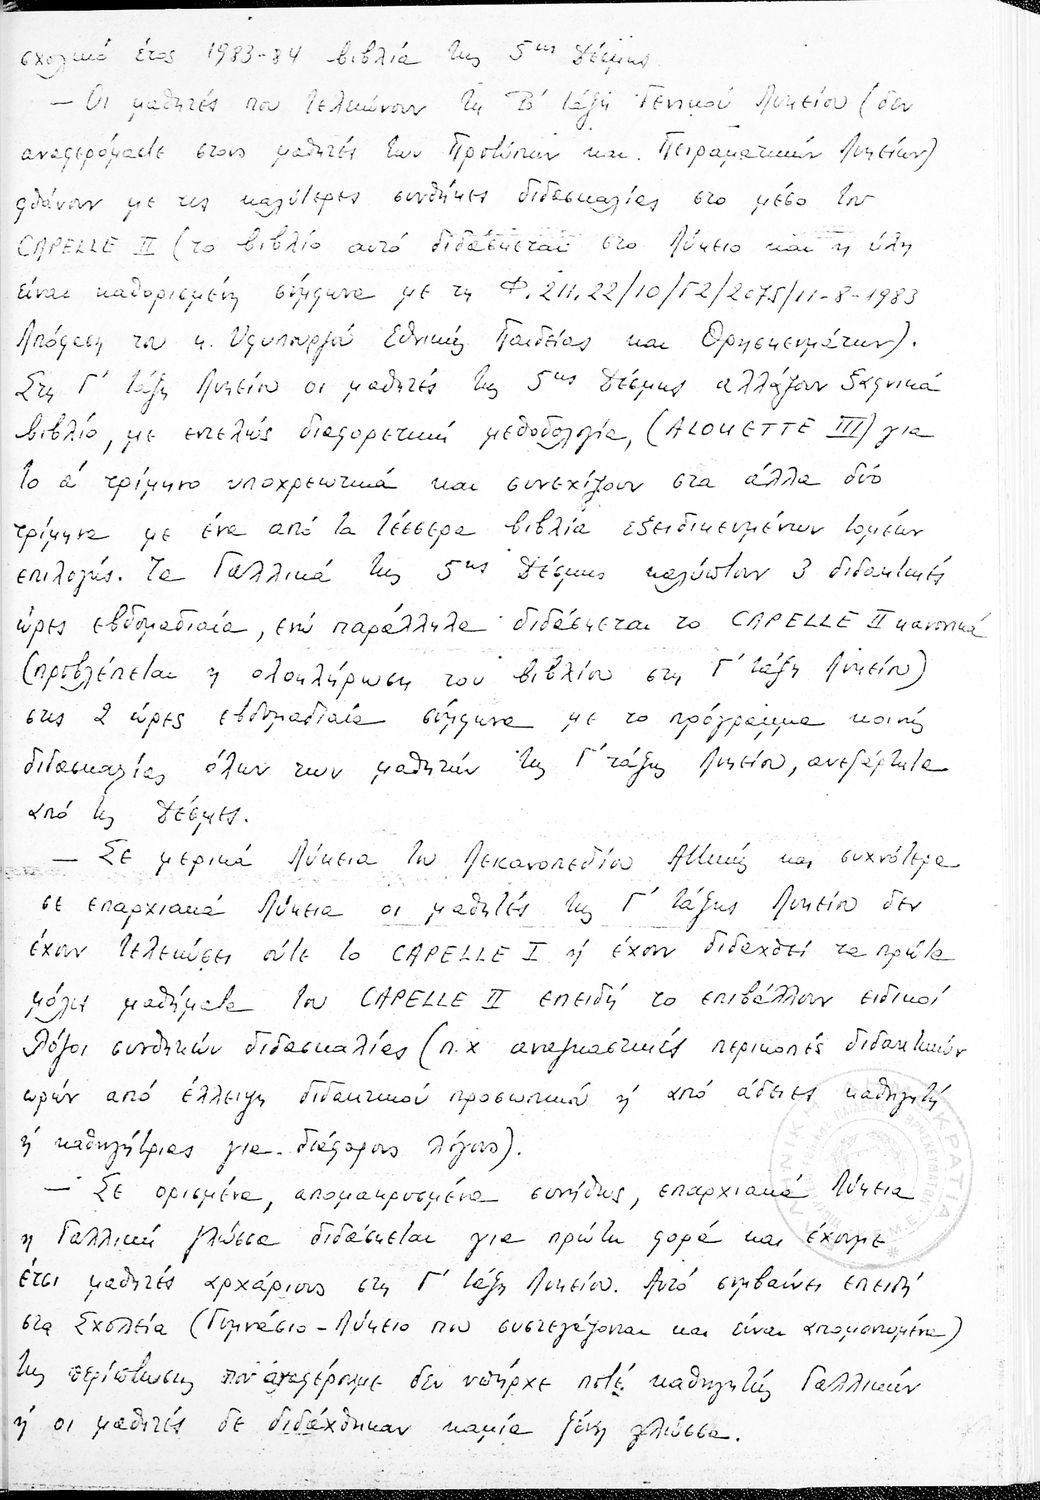 σχολικό έτος 1983-84 βιβλία της 5ης Δέσμης.
— Οι μαθητές που τελειώνουν τη Β΄ τάξη Γενικού Λυκείου (δεν
αναφερόμαστε στους μαθητές των Προτύπων και Πειραματικών Λυκείων)
φθάνουν με τις καλύτερες συνθήκες διδασκαλίας στο μέσο του
CAPELLE II (το βιβλίο αυτό διδάσκεται στο Λύκειο και η ύλη
είναι καθορισμένη σύμφωνα με τη Φ.211.22/10/Γ2/2075/11-8-1983
Απόφαση του κ. Υφυπουργού Εθνικής Παιδείας και Θρησκευμάτων).
Στη Γ΄ τάξη Λυκείου οι μαθητές της 5ης Δέσμης αλλάζουν ξαφνικά
βιβλίο, με εντελώς διαφορετική μεθοδολογία, (ALOUETTE III) για
το α΄ τρίμηνο υποχρεωτικά και συνεχίζουν στα άλλα δύο
τρίμηνα με ένα από τα τέσσερα βιβλία εξειδικευμένων τομέων
επιλογής. Τα Γαλλικά της 5ης Δέσμης καλύπτουν 3 διδακτικές
ώρες εβδομαδιαία, ενώ παράλληλα διδάσκεται το CAPELLE II κανονικά
(προβλέπεται η ολοκλήρωση του βιβλίου στη Γ΄ τάξη Λυκείου)
στις 2 ώρες εβδομαδιαία σύμφωνα με το πρόγραμμα κοινής
διδασκαλίας όλων των μαθητών της Γ΄ τάξης Λυκείου, ανεξάρτητα
από τις Δέσμες.
— Σε μερικά Λύκεια του Λεκανοπεδίου Αττικής και συχνότερα
σε επαρχιακά Λύκεια οι μαθητές της Γ΄ τάξης Λυκείου δεν
έχουν τελειώσει ούτε το CAPELLE I ή έχουν διδαχθεί τα πρώτα
μόλις μαθήματα του CAPELLE II επειδή το επιβάλλουν ειδικοί
λόγοι συνθηκών διδασκαλίας (π.χ αναγκαστικές περικοπές διδακτικών
ωρών από έλλειψη διδακτικού προσωπικού ή από άδειες καθηγητή
ή καθηγήτριας για διάφορους λόγους).
— Σε ορισμένα, απομακρυσμένα συνήθως, επαρχιακά Λύκεια
η Γαλλική γλώσσα διδάσκεται για πρώτη φορά και έχουμε
έτσι μαθητές αρχάριους στη Γ΄ τάξη Λυκείου. Αυτό συμβαίνει επειδή
στα Σχολεία (Γυμνάσιο-Λύκειο που συστεγάζονται και είναι απομονωμένα)
της περίπτωσης που αναφέρουμε δεν υπήρχε ποτέ καθηγητής Γαλλικών
ή οι μαθητές δε διδάχθηκαν καμία ξένη γλώσσα.